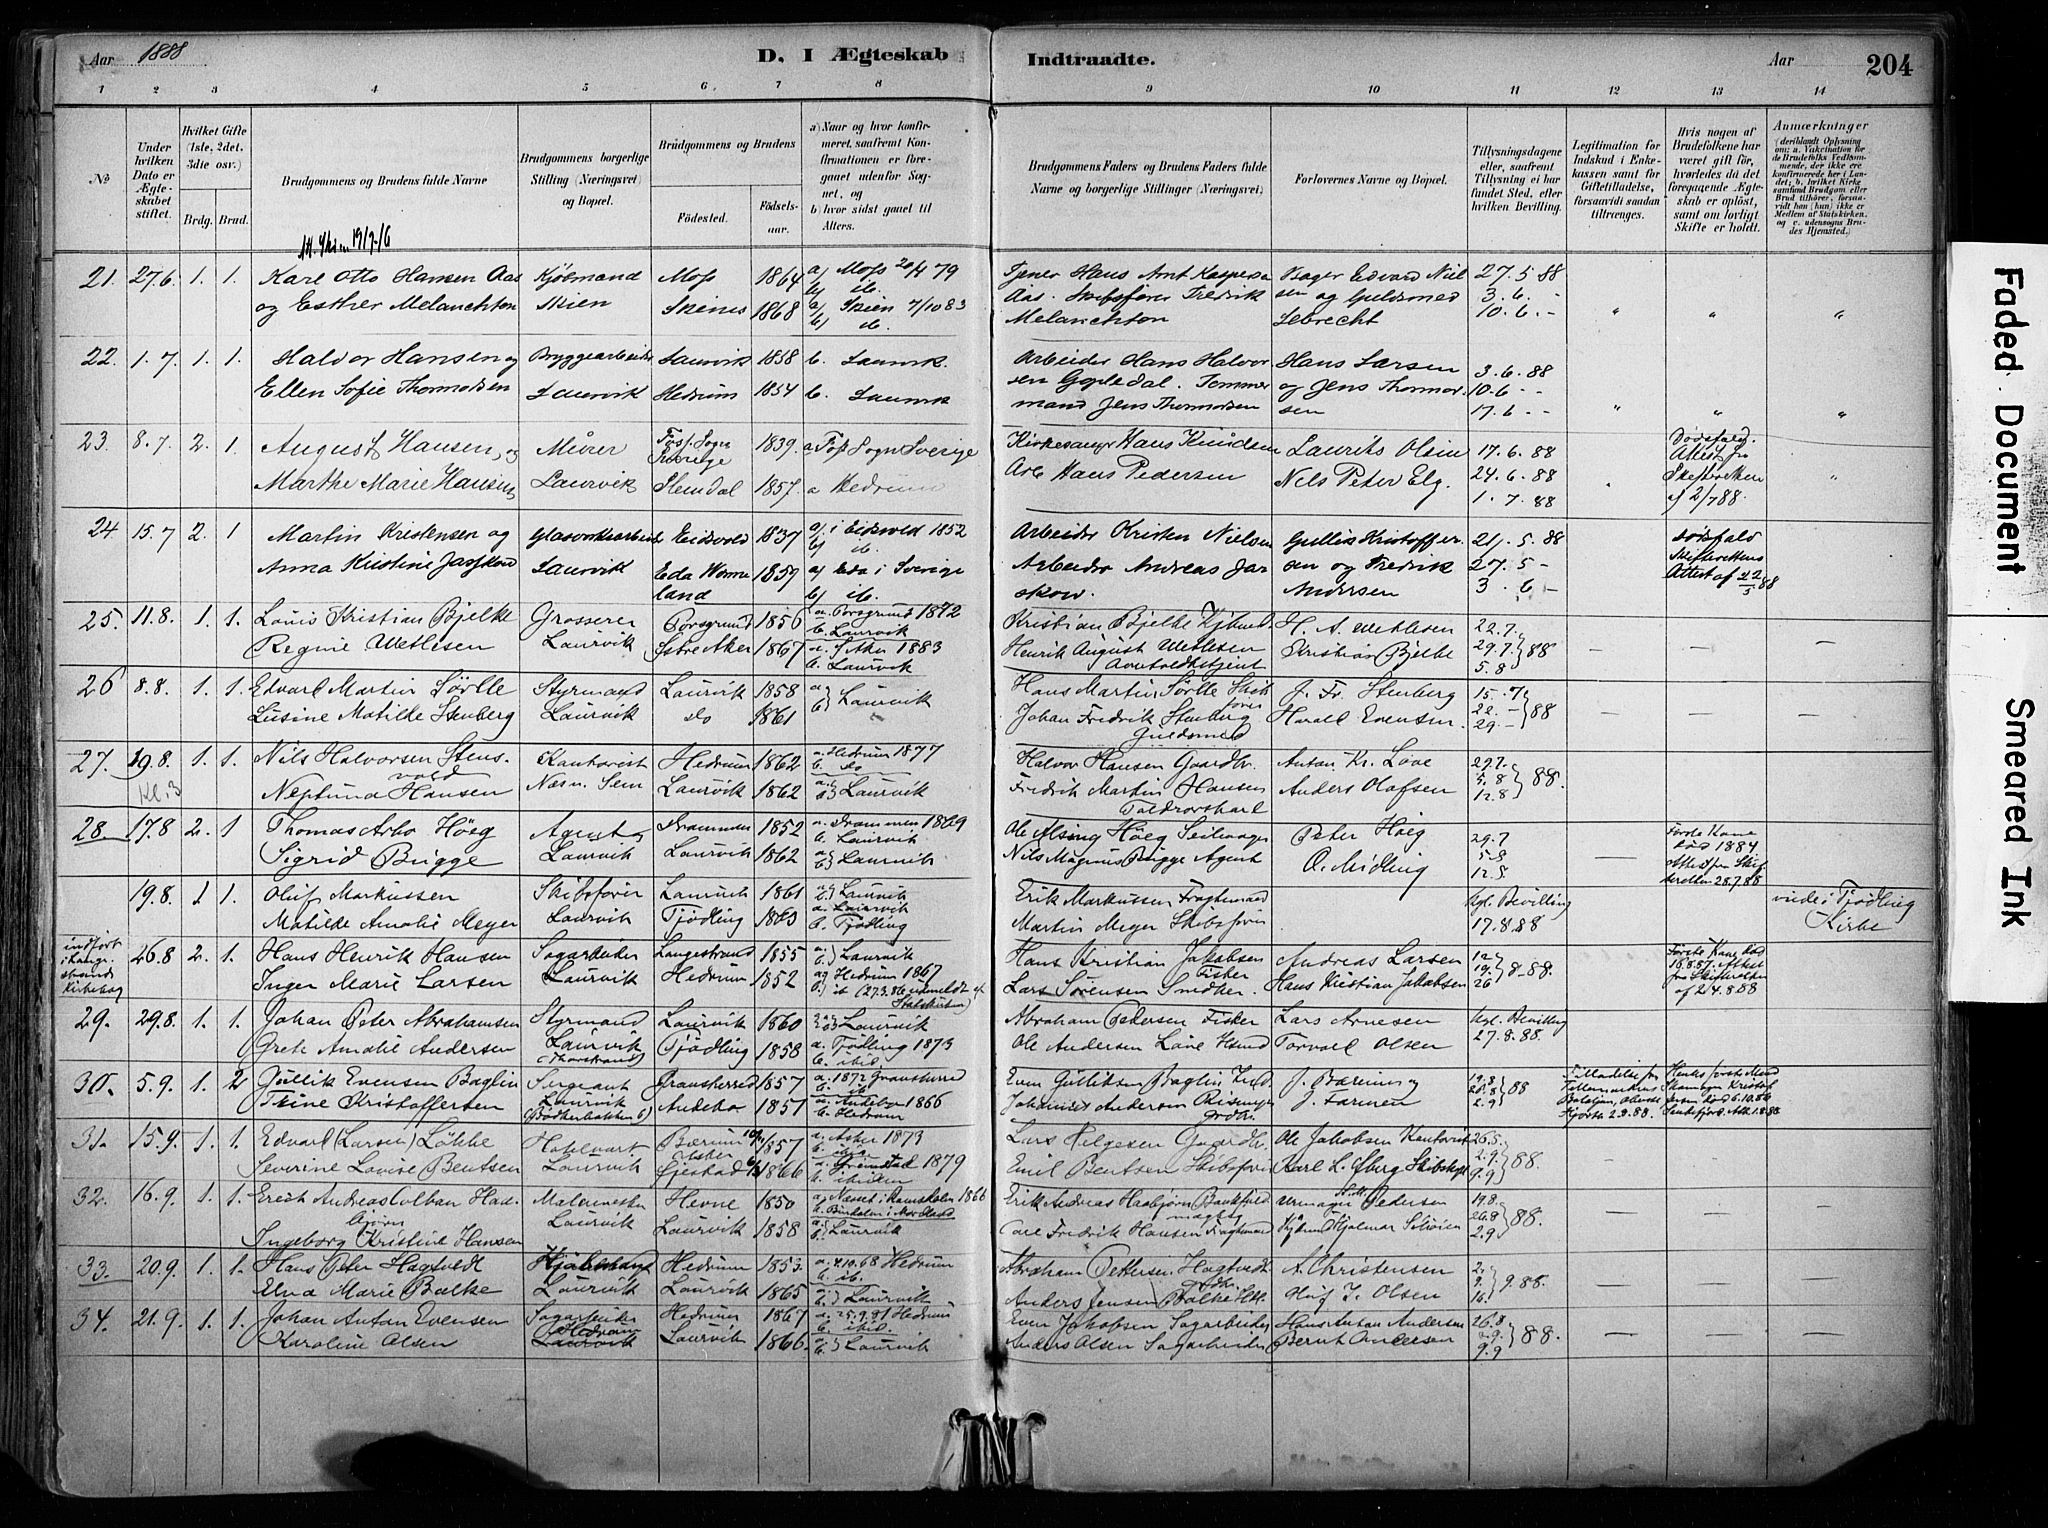 Aar 1888
D. I Ægteskab
Indtraadte.
Aar
204
1 2 3 4 5 6 7 8 9 10 11 12 13 14
№
Under hvilken Dato er Ægteskabet stiftet.
Hvilket Gifte (1ste, 2det, 3die osv.)
Brdg. Brud.
Brudgommens og Brudens fulde Navne
Brudgommens borgerlige Stilling (Næringsvei) og Bopæl.
Brudgommens og Brudens
Fødested.
Fødselsaar.
a) Naar og hvor konfirmeret, saafremt Konfirmationen er foregaaet udenfor Sognet, og
b) hvor sidst gaaet til Alters.
Brudgommens Faders og Brudens Faders fulde Navne og borgerlige Stillinger (Næringsvei)
Forlovernes Navne og Bopæl.
Tillysningsdagene eller, saafremt Tillysning ei har fundet Sted, efter hvilken Bevilling.
Legitimation for Indskud i Enkekassen samt for Giftetilladelse, forsaavidt saadan tiltrænges.
Hvis nogen af Brudefolkene har været gift før, hvorledes da det foregaaende Ægteskab er opløst, samt om lovligt Skifte er holdt.
Anmærkninger
(deriblandt Oplysning om: a. Vakcination for de Brudefolks Vedkommende, der ikke ere konfirmerede her i Landet; b. hvilket Kirkesamfund Brudgom eller Brud tilhører, forsaavidt han (hun) ikke er Medlem af Statskirken, og c. udensogns Brudes Hjemsted.)
21. 27.6 1. 1. Karl Otto Hansen Aas Kjøbmand Moss 1864 a) Moss 20/4 79 Tjener Hans Arnt Kaspersen Bager Edvard Niel 27.5 88
og Esther Melanchton Skien Skiens 1868 a) Skien 7/10 83 Aas. Skibsfører Fredrik sen og Guldsmed 3.6. -
Melanchton Lebrecht 10.6. -
22. 1.7. 1. 1. Halvor Hansen og Bryggearbeider Laurvik 1858 b. Laurvik. Arbeider Hans Halvor Hans Larsen 3.6.88
Ellen Sofie Thormodsen Laurvik Hedrum 1854 b. Laurvik sen Gopledal. Tømmer og Jens Thormod 10.6 -
mand Jens Thormodsen sen 17.6 - -
23 8.7. 2. 1 August Hansen, og Mürer Foss Sogn Sverige 1839. a Foss Sogn Sverige Kirkesanger Hans Knudsen Laurits Olsen 17.6.88 Dødsfald. Attest fra
Marthe Marie Hansen Laurvik Slemdal 1857. a Hedrum Arb Hans Pedersen Nils Peter Elg. 24.6.88 Skifteretten
1.7.88 af 2/7 88.
24 15.7 2. 1 Martin Kristensen og Laurvik Eidsvold 1837 a) i Eidsvold 1852 Arbeider Kristen Nielsen Gullik Kristoffer 21.5.88 Dødsfald
Anna Kristine Eda Wermeland 1859 a) Eda i Sverige Arbeider Andreas Jar sen og Fredrik 27.5 - Skifterettens
b) ib. skow. Andersen 3.6 - Attest af 22/5 88
25. 11.8. 1. 1. Louis Kristian Bjelke Grosserer Porsgrund 1856 a. Porsgrund 1872 b. Laurvik Kristian Bjelke H. A. Wetlesen 22.7.
Regine Wetlesen Laurvik Østre Aker 1867 a. Ø Aker 1883 b. Laurvik Henrik August Wetlesen Kristian Bjelke 29.7. 88 5.8
26 8.8. 1. 1. Edvard Martin Sørlle Styrmand Laurvik 1858 a b Laurvik Hans Martin Sørlle Skibsfører J. Fr. Stenberg 15.7
Lusine Matilde Stenberg Laurvik do 1861 Johan Fredrik Stenberg Guldsmed Harald Evensen 22.- 88 29-
27. 19.8. 1. 1. Nils Halvorsen Stensvold Kontorist Hedrum 1862 a. Hedrum 1877 b. do Halvor Hansen Gaardbr. Anton Kr. Love 29.7.
Kl. 3 Neptuna Hansen Næsn. Sem Laurvik 1862 a) b) Laurvik Fredrik Martin Hansen Toldrorskarl Anders Olafsen 5.8 88. 12.8
28. 17.8 2. 1 Thomas Arbo Höeg Agent Drammen 1852 a. Drammen 1869 b. Laurvik Ole Alsing Höeg Seilmager Peter Höeg 29.7 Første Kone død 1884
Sigrid Bugge Laurvik Laurvik 1862 a) b) Laurvik Nils Magnus Bugge Agent O. Midling 5.8 12.8 Attest fra Skifteretten 28.7.88
19.8. 1 1. Oluf Markussen Skibsfører Laurvik 1861 a) b) Laurvik Erik Markussen Fragtemand Kgl. Bevilling viede i Tjødling
Matilde Amalie Meyer Laurvik Tjødling 1863 a. Laurvik b. Tjødling Martin Meyer Skibsfører 17.8.88 Kirke
indført i Langestrands Kirkebog 26.8 2. 1. Hans Henrik Hansen Sagarbeider Langestrand 1855 a) b) Laurvik Hans Kristian Jakobsen Fisker Andreas Larsen 12
Inger Marie Larsen Laurvik Hedrum 1852 a) Hedrum 1867 b) ib (27.3.86 udmeldt af Statskirken) Lars Sørensen Snedker. Hans Kristian Jakobsen 19. 8-88. 26
29. 29.8. 1. 1. Johan Peter Abrahamsen Styrmand Laurvik 1860 a) b) Laurvik Abraham Pedersen Fisker Lars Arnesen Kgl. Bevilling
Grete Amalie Andersen Laurvik (Thorstrand) Tjødling 1858 a. Tjødling 1873 b. ibid. Ole Andersen Love Torvald Olsen 27.8.88.
30. 5.9. 1. 2 Gullik Evensen Baglin Sergeant Gransherred 1857 a. 1872 Gransherred Even Gulliksen Baglin J. Bærum og 19.8
Trine Kristoffersen Laurvik (Bødkerbakken 6) Andebo 1851 a. Andebo 1866 b. Hedrum Johannes Andersen J. Farmen 88 2.9
31. 15.9. 1. 1. Edvard (Larsen) Løkke Hotelvært Bærum Asker 1857 a. Asker 1873 Lars Helgesen Gaardbr. Ole Jakobsen Kontorist 26.5.
Severine Lovise Bentsen Laurvik Fjestad 1866 a. Grimstad 1879 b. ibidem Emil Bentsen Skibsfører Karl L. Øberg 2.9. 88. 9.9
32. 16.9. 1. 1. Erich Andreas Colban Haabjørn Malermester Hevne 1850 Erik Andreas Haabjørn Urmager Pedersen 19.8.
Ingeborg Kristine Hansen Laurvik Laurvik 1858 a. b. Laurvik Carl Fredrik Hansen Fragtemand Hjalmar 26.8 88. 2.9
33. 20.9. 1. 1. Hans Peter Hagtvedt Kjøbmand Hedrum 1853. a. 4.10.68 Hedrum b. ib. Abraham Pettersen Hagtvedt A. Christensen 2.
Elna Marie Balke Laurvik Laurvik 1865 a) b) Laurvik Anders Jensen Balke Oluf J. Olsen 9. 9.88. 16.
34. 21.9. 1. 1. Johan Anton Evensen Sagarbeider Hedrum 1867 a. 25.9.81 Hedrum b. ibid. Even Jakobsen Sagarbeider Hans Anton Andersen 26.8
Karoline Olsen Hedrum Laurvik Laurvik 1866. a. b. Laurvik Anders Olsen Sagarbeider Bernt Andersen 2.9. 88. 9.9
Faded Document
Smeared Ink